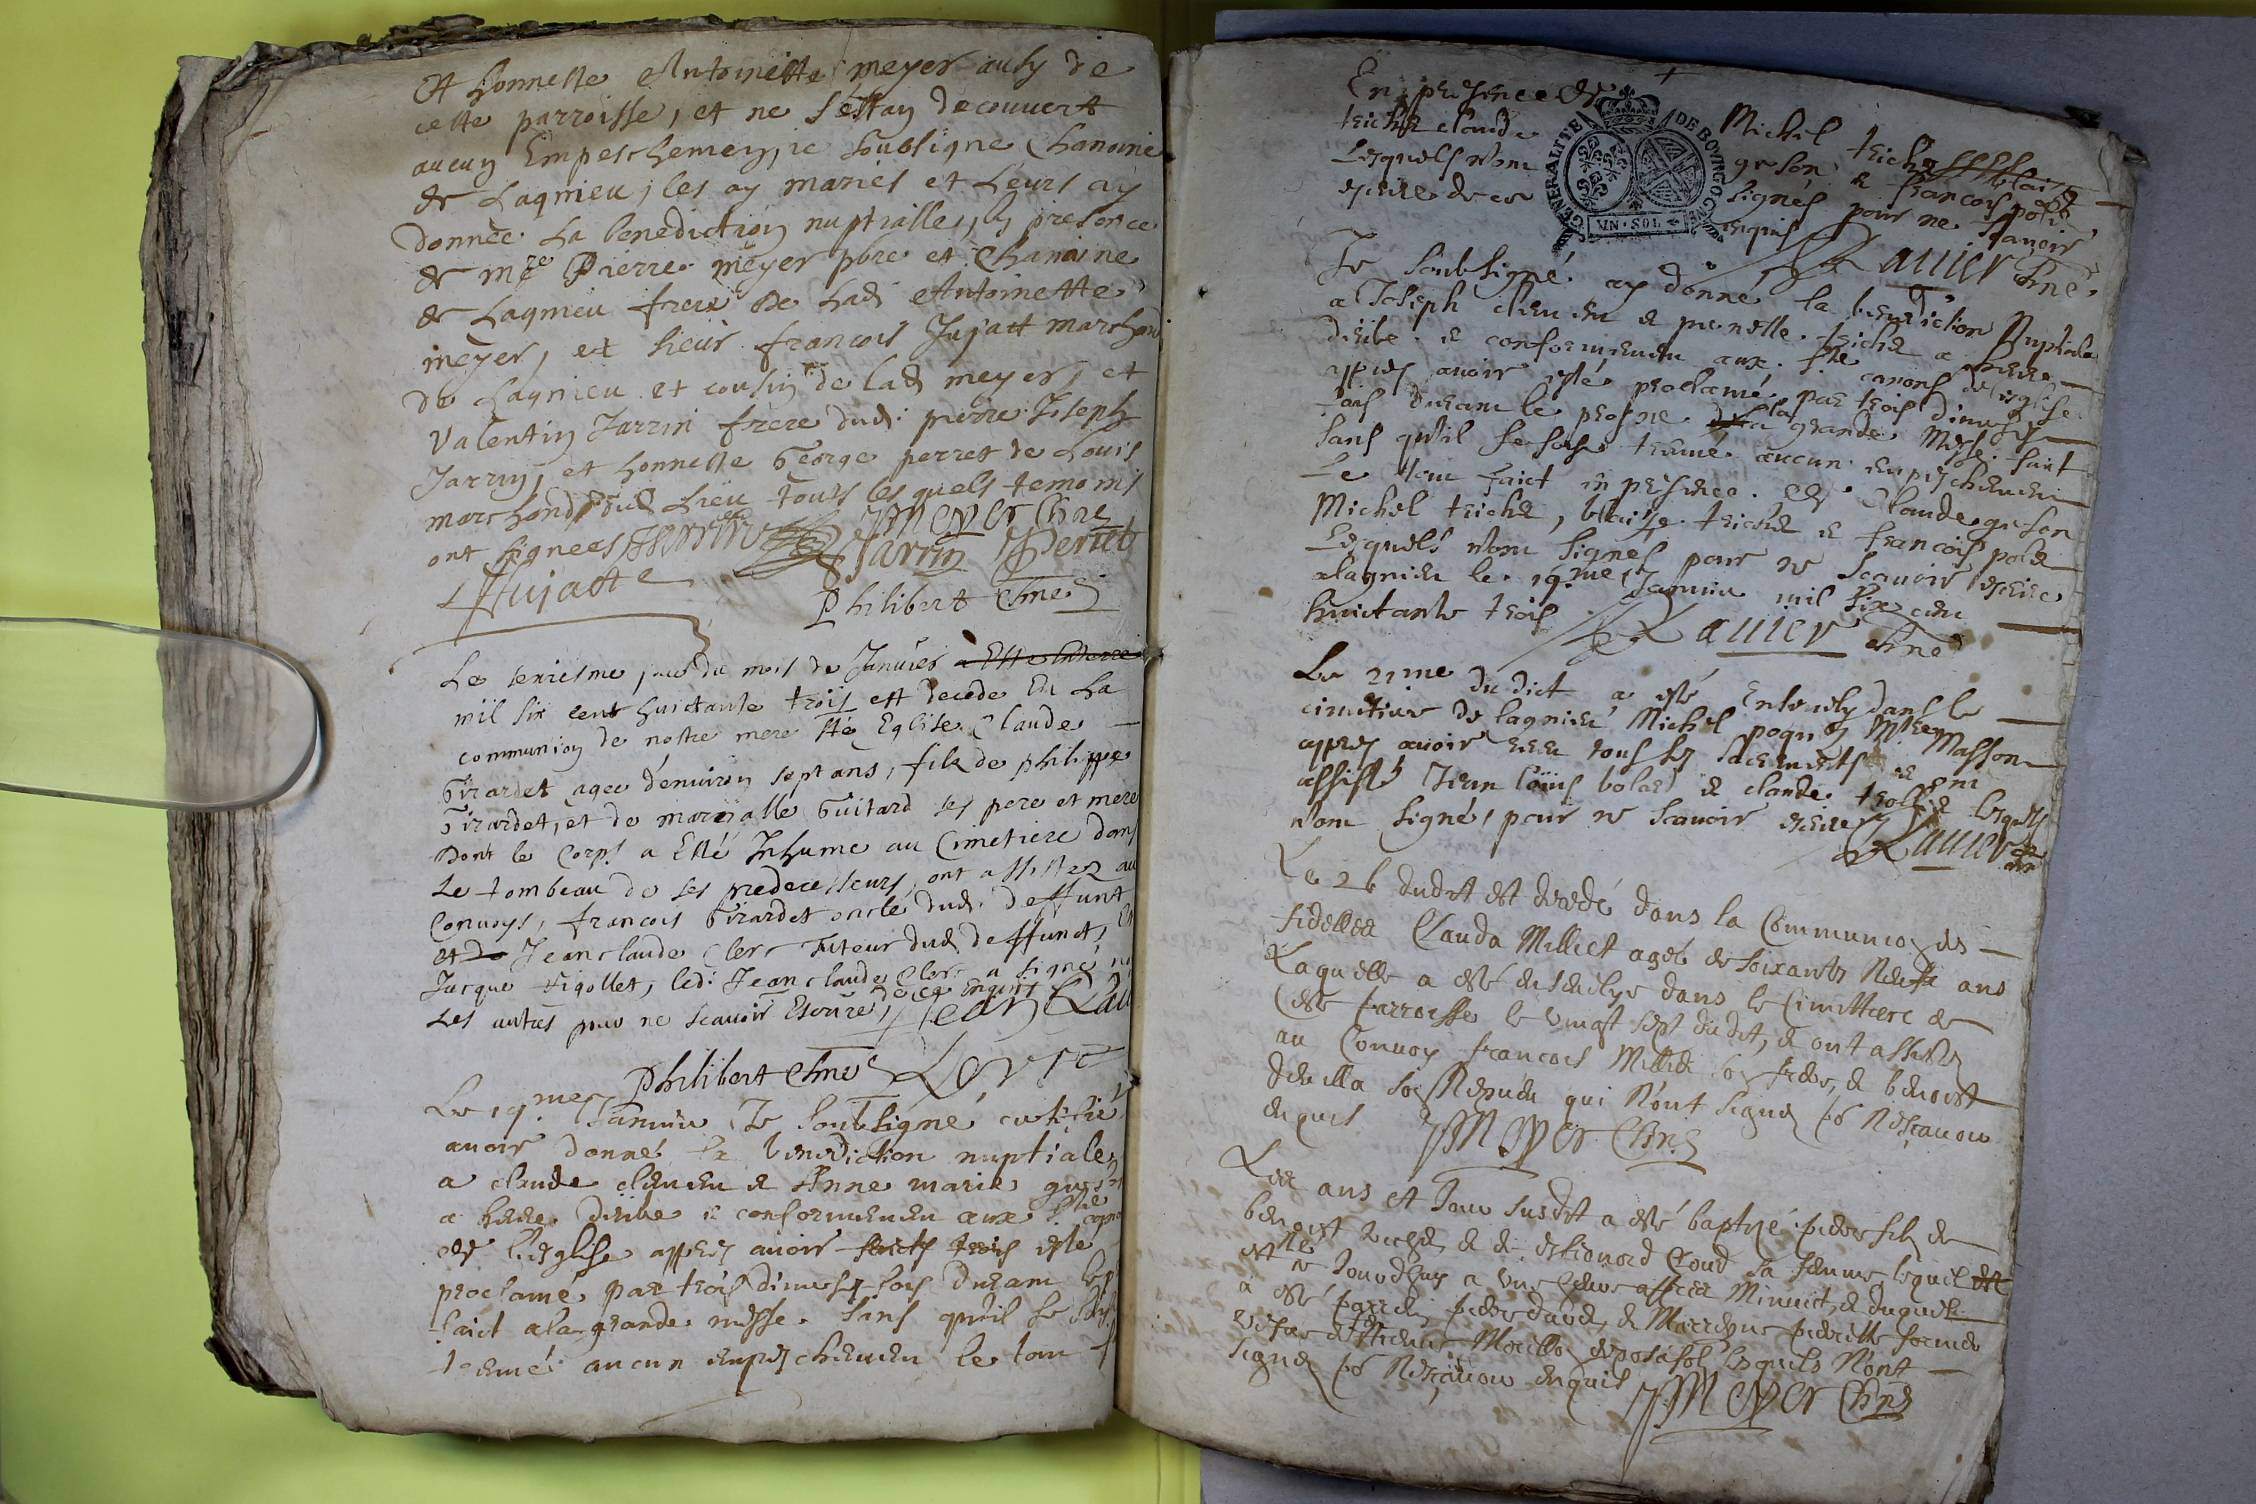 Et honneste Antoinette meyer ausy de
cette parroisse, et ne s'estan decouvert
aucun Empeschemen, ie soubsigne Chanoine
de Lagnieu, les ay mariés et Leurs ay
donnée La benediction nuptialle, en presence
de mre Pierre meyer pbre et Chanoine
de Lagnieu frere de Lad: Antoinette
meyer, et sieur francois Jujatt marchan
de Lagnieu et cousin de lad meyer, et
Valentin Jarrin frere dud: pierre Joseph
Jarrin, et honneste George perret de Louis
marchand dud Lieu tous les quels temoins
ont signees Jarrin JMeyer Chne
Jarrin Perret
Jujatt
Philibert Chne
Le sexiesme jour du mois de Janvier a Este Enterre
mil six cent huictante trois est decede En La
communion de nostre mere Ste Eglise Claude
Girardet agee denviron sept ans, filz de philippe
Girardet, et de Guitard ses pere et mere
Dont le Corps a Esté Inhume au Cimetiere dans
Le tombeau de ses predecesseurs, ont assistez au
Convoys, francois Girardet oncle dud: deffunt
et de Jeanclaude Clerc Tuteur dud deffunct, Et
Jacque Vigollet, led: Jeanclaude Clerc a signe
Les autres pour ne scavoir Escrire, de ce Enquis Jean Clau
Philibert Chne
Le 19me Janvier Je soubsigné certifie
avoir donné la benediction nuptiale
a claude clement et Anne marie
a conformement aux Ste
de l'esglise appres avoir esté
proclamé par trois diverses fois durant le
faict a la grande messe. Sans qu'il se soit
treuvé aucun empeschement le tou
En presence de Michel triche blaise
triche claude gueson et francois
Lesquels n'ont signés pour ne scavoir
escrire de ce enquis
GENERALITE DE BOVRGOGNE
VN·SOL
Lauier Chne
Je soubsigné ay donné la benediction Nuptiale
a Joseph clement et pernette triche a
conformement aux Ste canons de l'esglise
appres avoir esté proclamé par trois diverses
fois durant le prosne de la grande Messe faict
Sans qu'il se soit treuvé aucun empeschement
Le tout faict in presence de Claude gueson
Michel triche, blaise triche et francois
Lesquels n'ont signes pour ne scavoir escrire
a lagnieu le 19me Janvier mil six cen
huictante trois Lauier chne
Le 21me du dict a esté Ensevely dans le
cimetiere de lagnieu Michel Mre Masson
appres avoir receu tous les sacrements et ont
assisté Jean Louis et claude lesquels
n'ont signé, pour ne scavoir escrire Lauier chne
Le 26 dudit est decedé dans la Communion des
fidelles Clauda Milliet agée de soixante Neufz ans
Laquelle a esté ensevelye dans le Cimettiere de
Ceste parroisse le vingt sept dudit, et ont assistés
au Convoy francois Milliet son frere, et benoist
devilla son Nepveu qui N'ont signez pr Nescavoir
enquis JMeyer Chne
Les ans et Jour susdit a esté baptizé pierre filz de
benoist et de Cloud sa femme, lequel est
est né a une heure apprez Minuict, et duquel
a esté parrein pierre
lesquels N'ont
signez pr Nescavoir enquis JMeyer Chne